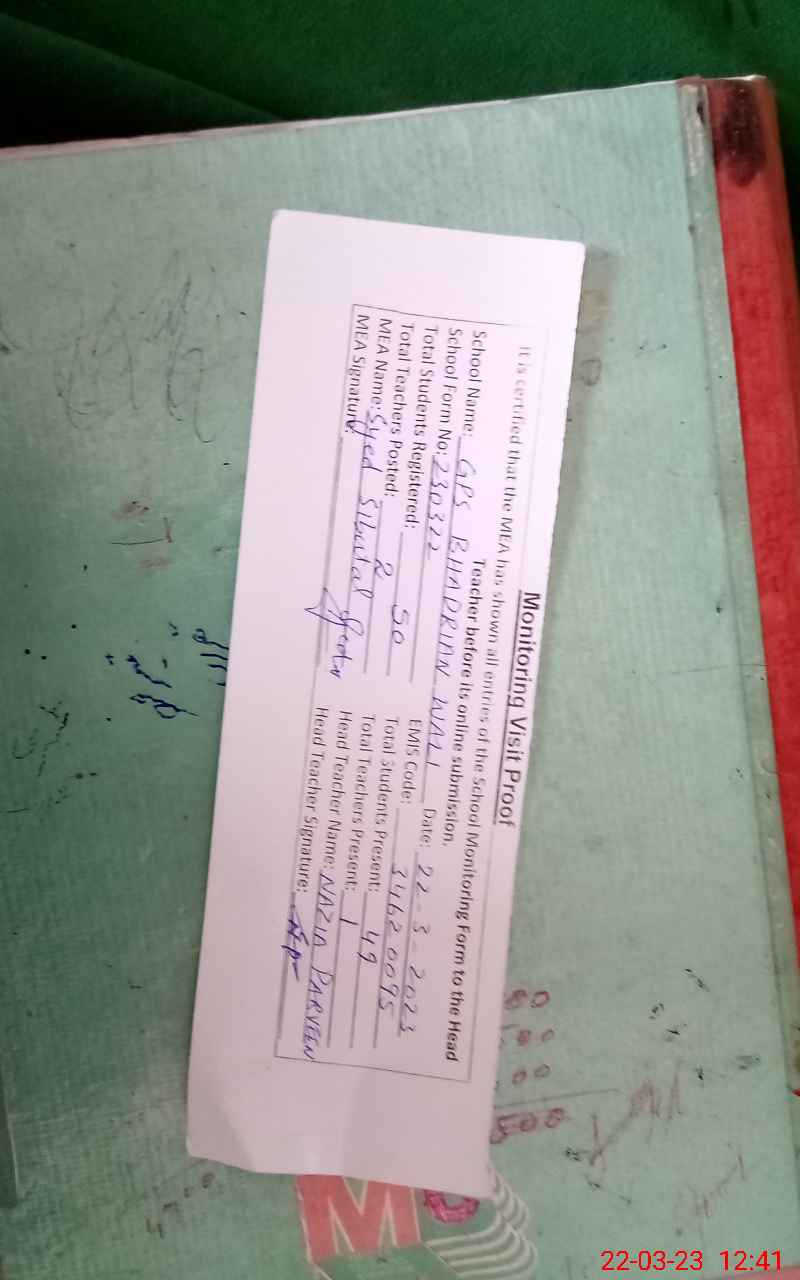 Monitoring Visit Proof
It is certified that the MEA has shown all entries of the School Monitoring Form to the Head
Teacher before its online submission.
School Name: GPS BHADRIAN WALI Date: 22-3-2023
School Form No: 230322 EMIS Code: 34620095
Total Students Registered: 50 Total Students Present: 49
Total Teachers Posted: 2 Total Teachers Present: 1
MEA Name: Syed Head Teacher Name: NAZIA PARVEEN
MEA Signature: Head Teacher Signature:
500
22-03-23 12:41